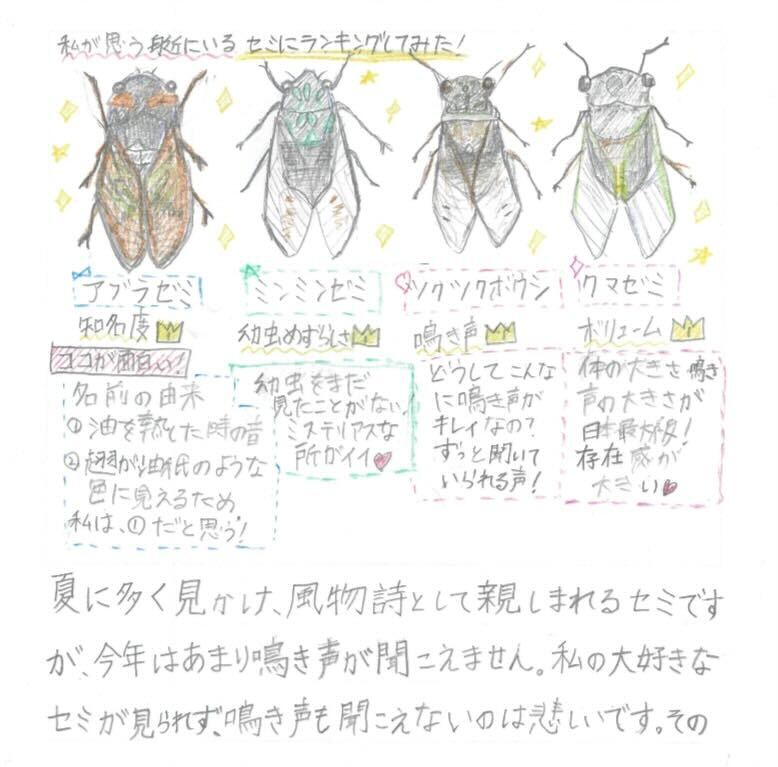 私が思う身近にいるセミにランキングしてみた!
アブラゼミ
知名度
ココが面白い!
名前の由来
①油を熱した時の音
②翅が油紙のような
色に見えるため
私は、①だと思う!
ミンミンゼミ
幼虫めずらしさ
幼虫をまだ
見たことがない!
ミステリアスな
所がイイ
ツクツクボウシ
鳴き声
どうしてこんな
に鳴き声が
キレイなの?
ずっと聞いて
いられる声!
クマゼミ
ボリューム
体の大きさ鳴き
声の大きさが
日本最大級!
存在感が
大きい
夏に多く見かけ、風物詩として親しまれるセミです
が、今年はあまり鳴き声が聞こえません。私の大好きな
セミが見られず、鳴き声も聞こえないのは悲しいです。その